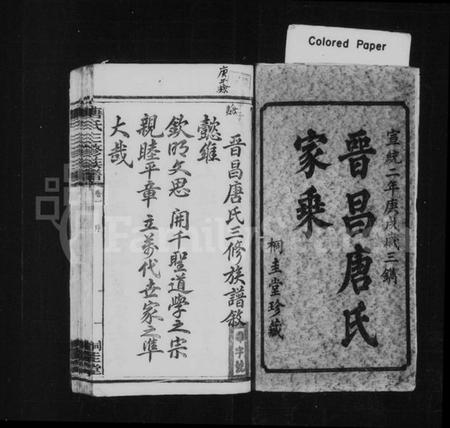 Colored Paper
宣統二年庚戌歲三鐫
晉昌唐氏
家乘
桐圭堂珍藏
晉昌唐氏三修族譜敘
懿維
欽明文思開千聖道學之宗
親睦平章立萬代世家之準
大哉
唐氏三修族譜
卷一
序
桐圭堂
FamilySearch